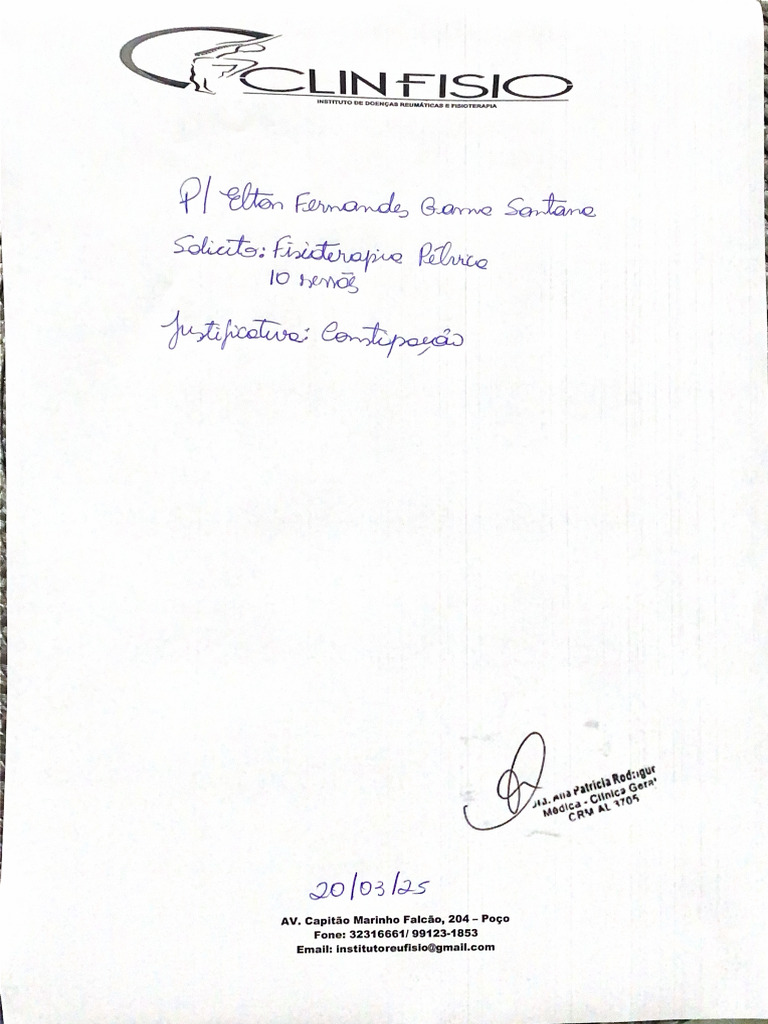 CLINFISIO
INSTITUTO DE DOENÇAS REUMÁTICAS E FISIOTERAPIA
P/ Elton Fernandes Gama Santana
Solicito: Fisioterapia Pélvica
10 sessões
Justificativa: Constipação
Dra. Ana Patricia Rodrigu
Médica - Clínica Geral
CRM AL 3705
20/03/25
AV. Capitão Marinho Falcão, 204 – Poço
Fone: 32316661/ 99123-1853
Email: institutoreufisio@gmail.com